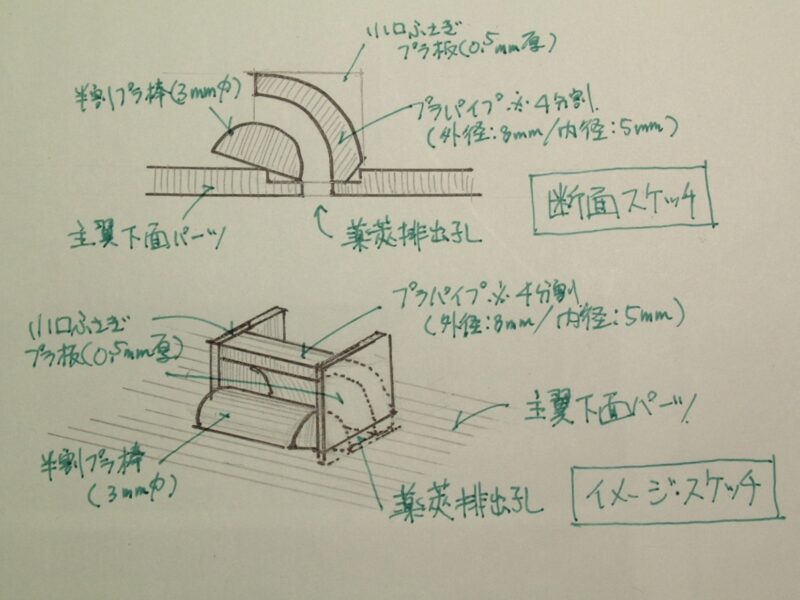 小口ふさぎ
プラ板(0.5mm厚)
半割プラ棒(3mmΦ)
プラパイプ※4分割
(外径:8mm/内径:5mm)
断面スケッチ
主翼下面パーツ
薬莢排出孔
小口ふさぎ
プラ板(0.5mm厚)
プラパイプ※4分割
(外径:8mm/内径:5mm)
主翼下面パーツ
半割プラ棒
(3mmΦ)
薬莢排出孔
イメージ・スケッチ